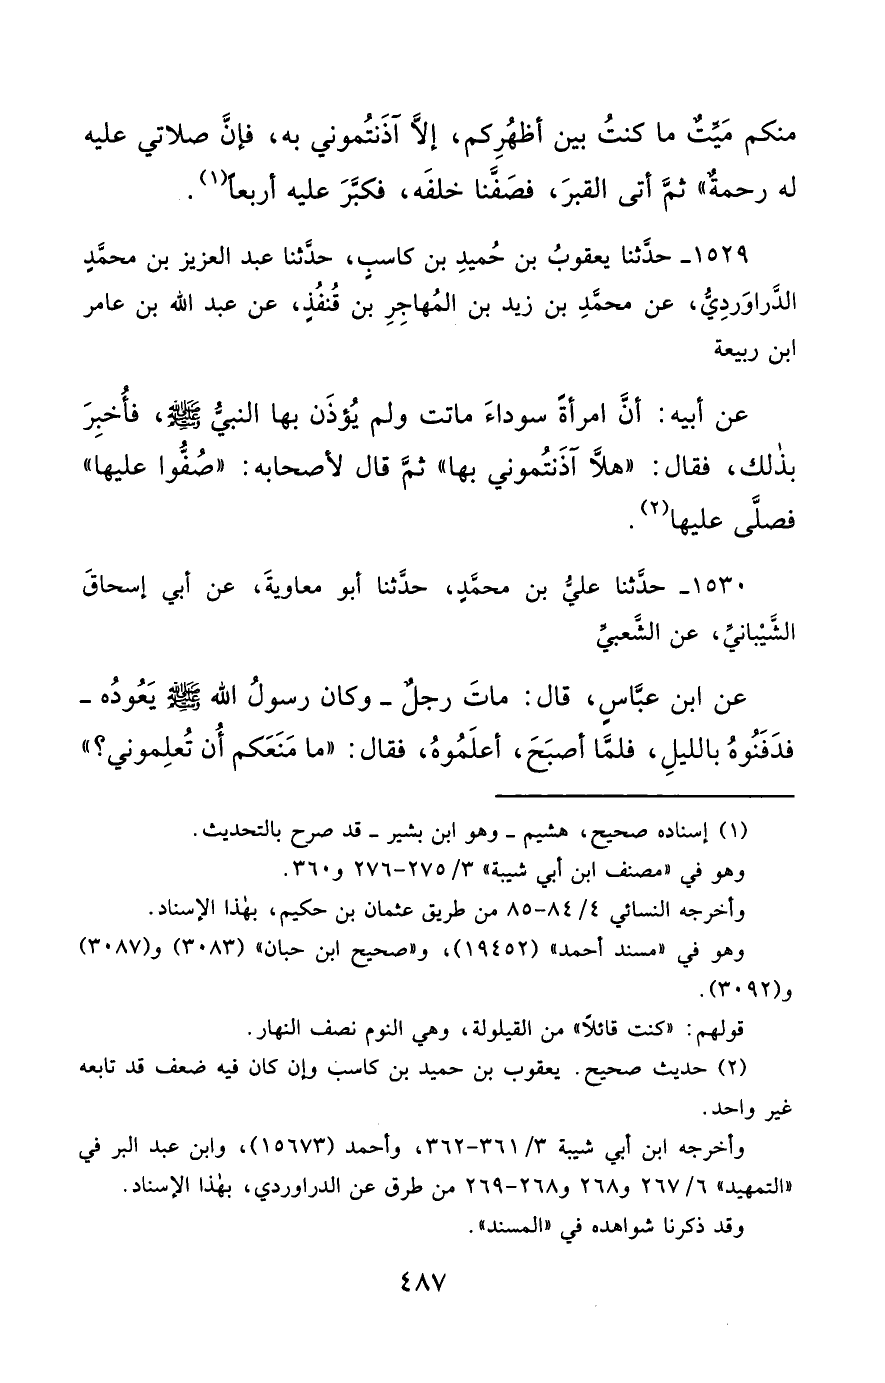 منكم مَيِّتٌ ما كنتُ بين أظهُرِكم، إلاَّ آذَنتُموني به، فإنَّ صلاتي عليه
له رحمةٌ» ثمَّ أتى القبرَ، فصَفَّنا خلفَه، فكبَّرَ عليه أربعاً(١).
١٥٢٩ـ حدَّثنا يعقوبُ بن حُميدِ بن كاسبٍ، حدَّثنا عبد العزيز بن محمَّدٍ
الدَّراوَردِيُّ، عن محمَّدِ بن زيد بن المُهاجِرِ بن قُنفُذٍ، عن عبد الله بن عامر
ابن ربيعة
عن أبيه: أنَّ امرأةً سوداءَ ماتت ولم يُؤذَن بها النبيُّ ﷺ، فأُخبِرَ
بذٰلك، فقال: «هلاَّ آذَنتُموني بها» ثمَّ قال لأصحابه: «صُفُّوا عليها»
فصلَّى عليها(٢).
١٥٣٠ـ حدَّثنا عليُّ بن محمَّدٍ، حدَّثنا أبو معاويةَ، عن أبي إسحاقَ
الشَّيْبانيِّ، عن الشَّعبيِّ
عن ابن عبَّاسٍ، قال: ماتَ رجلٌ ـ وكان رسولُ الله ﷺ يَعُودُه ـ
فدَفَنُوهُ بالليلِ، فلمَّا أصبَحَ، أعلَمُوهُ، فقال: «ما مَنَعَكم أن تُعلِموني؟»
(١) إسناده صحيح، هشيم ـ وهو ابن بشير ـ قد صرح بالتحديث.
وهو في «مصنف ابن أبي شيبة» ٣/ ٢٧٥-٢٧٦ و٣٦٠.
وأخرجه النسائي ٤/ ٨٤-٨٥ من طريق عثمان بن حكيم، بهٰذا الإسناد.
وهو في «مسند أحمد» (١٩٤٥٢)، و«صحيح ابن حبان» (٣٠٨٣) و(٣٠٨٧)
و(٣٠٩٢).
قولهم: «كنت قائلاً» من القيلولة، وهي النوم نصف النهار.
(٢) حديث صحيح. يعقوب بن حميد بن كاسب وإن كان فيه ضعف قد تابعه
غير واحد.
وأخرجه ابن أبي شيبة ٣/ ٣٦١-٣٦٢، وأحمد (١٥٦٧٣)، وابن عبد البر في
«التمهيد» ٦/ ٢٦٧ و٢٦٨ و٢٦٨-٢٦٩ من طرق عن الدراوردي، بهٰذا الإسناد.
وقد ذكرنا شواهده في «المسند».
٤٨٧